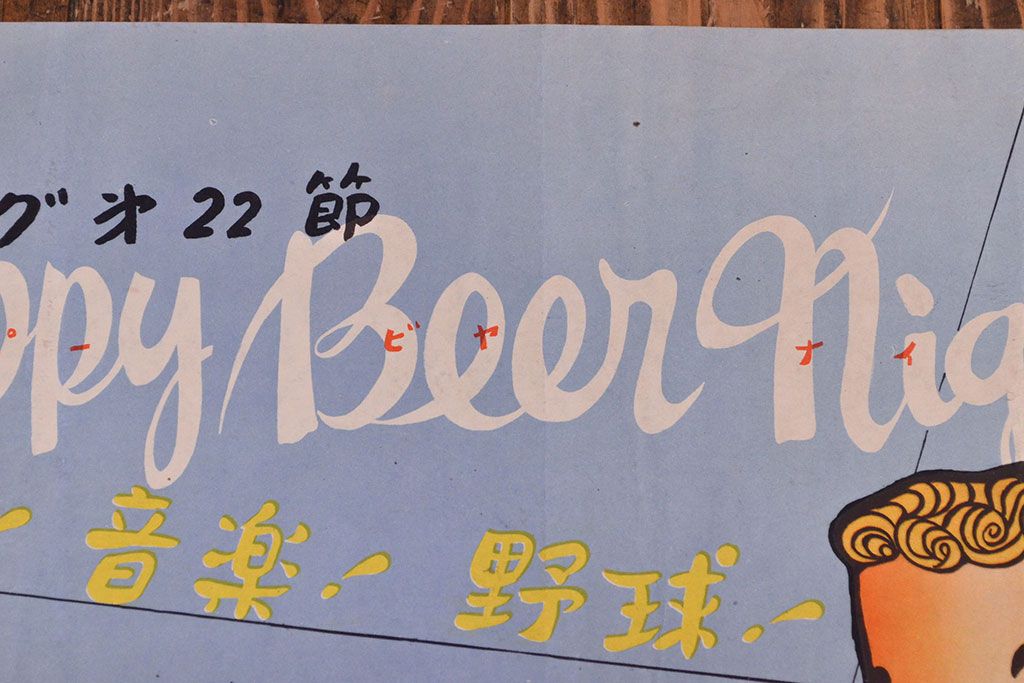 グ第22節
ppy Beer Nig
ピー ビヤ ナイ
! 音楽! 野球!